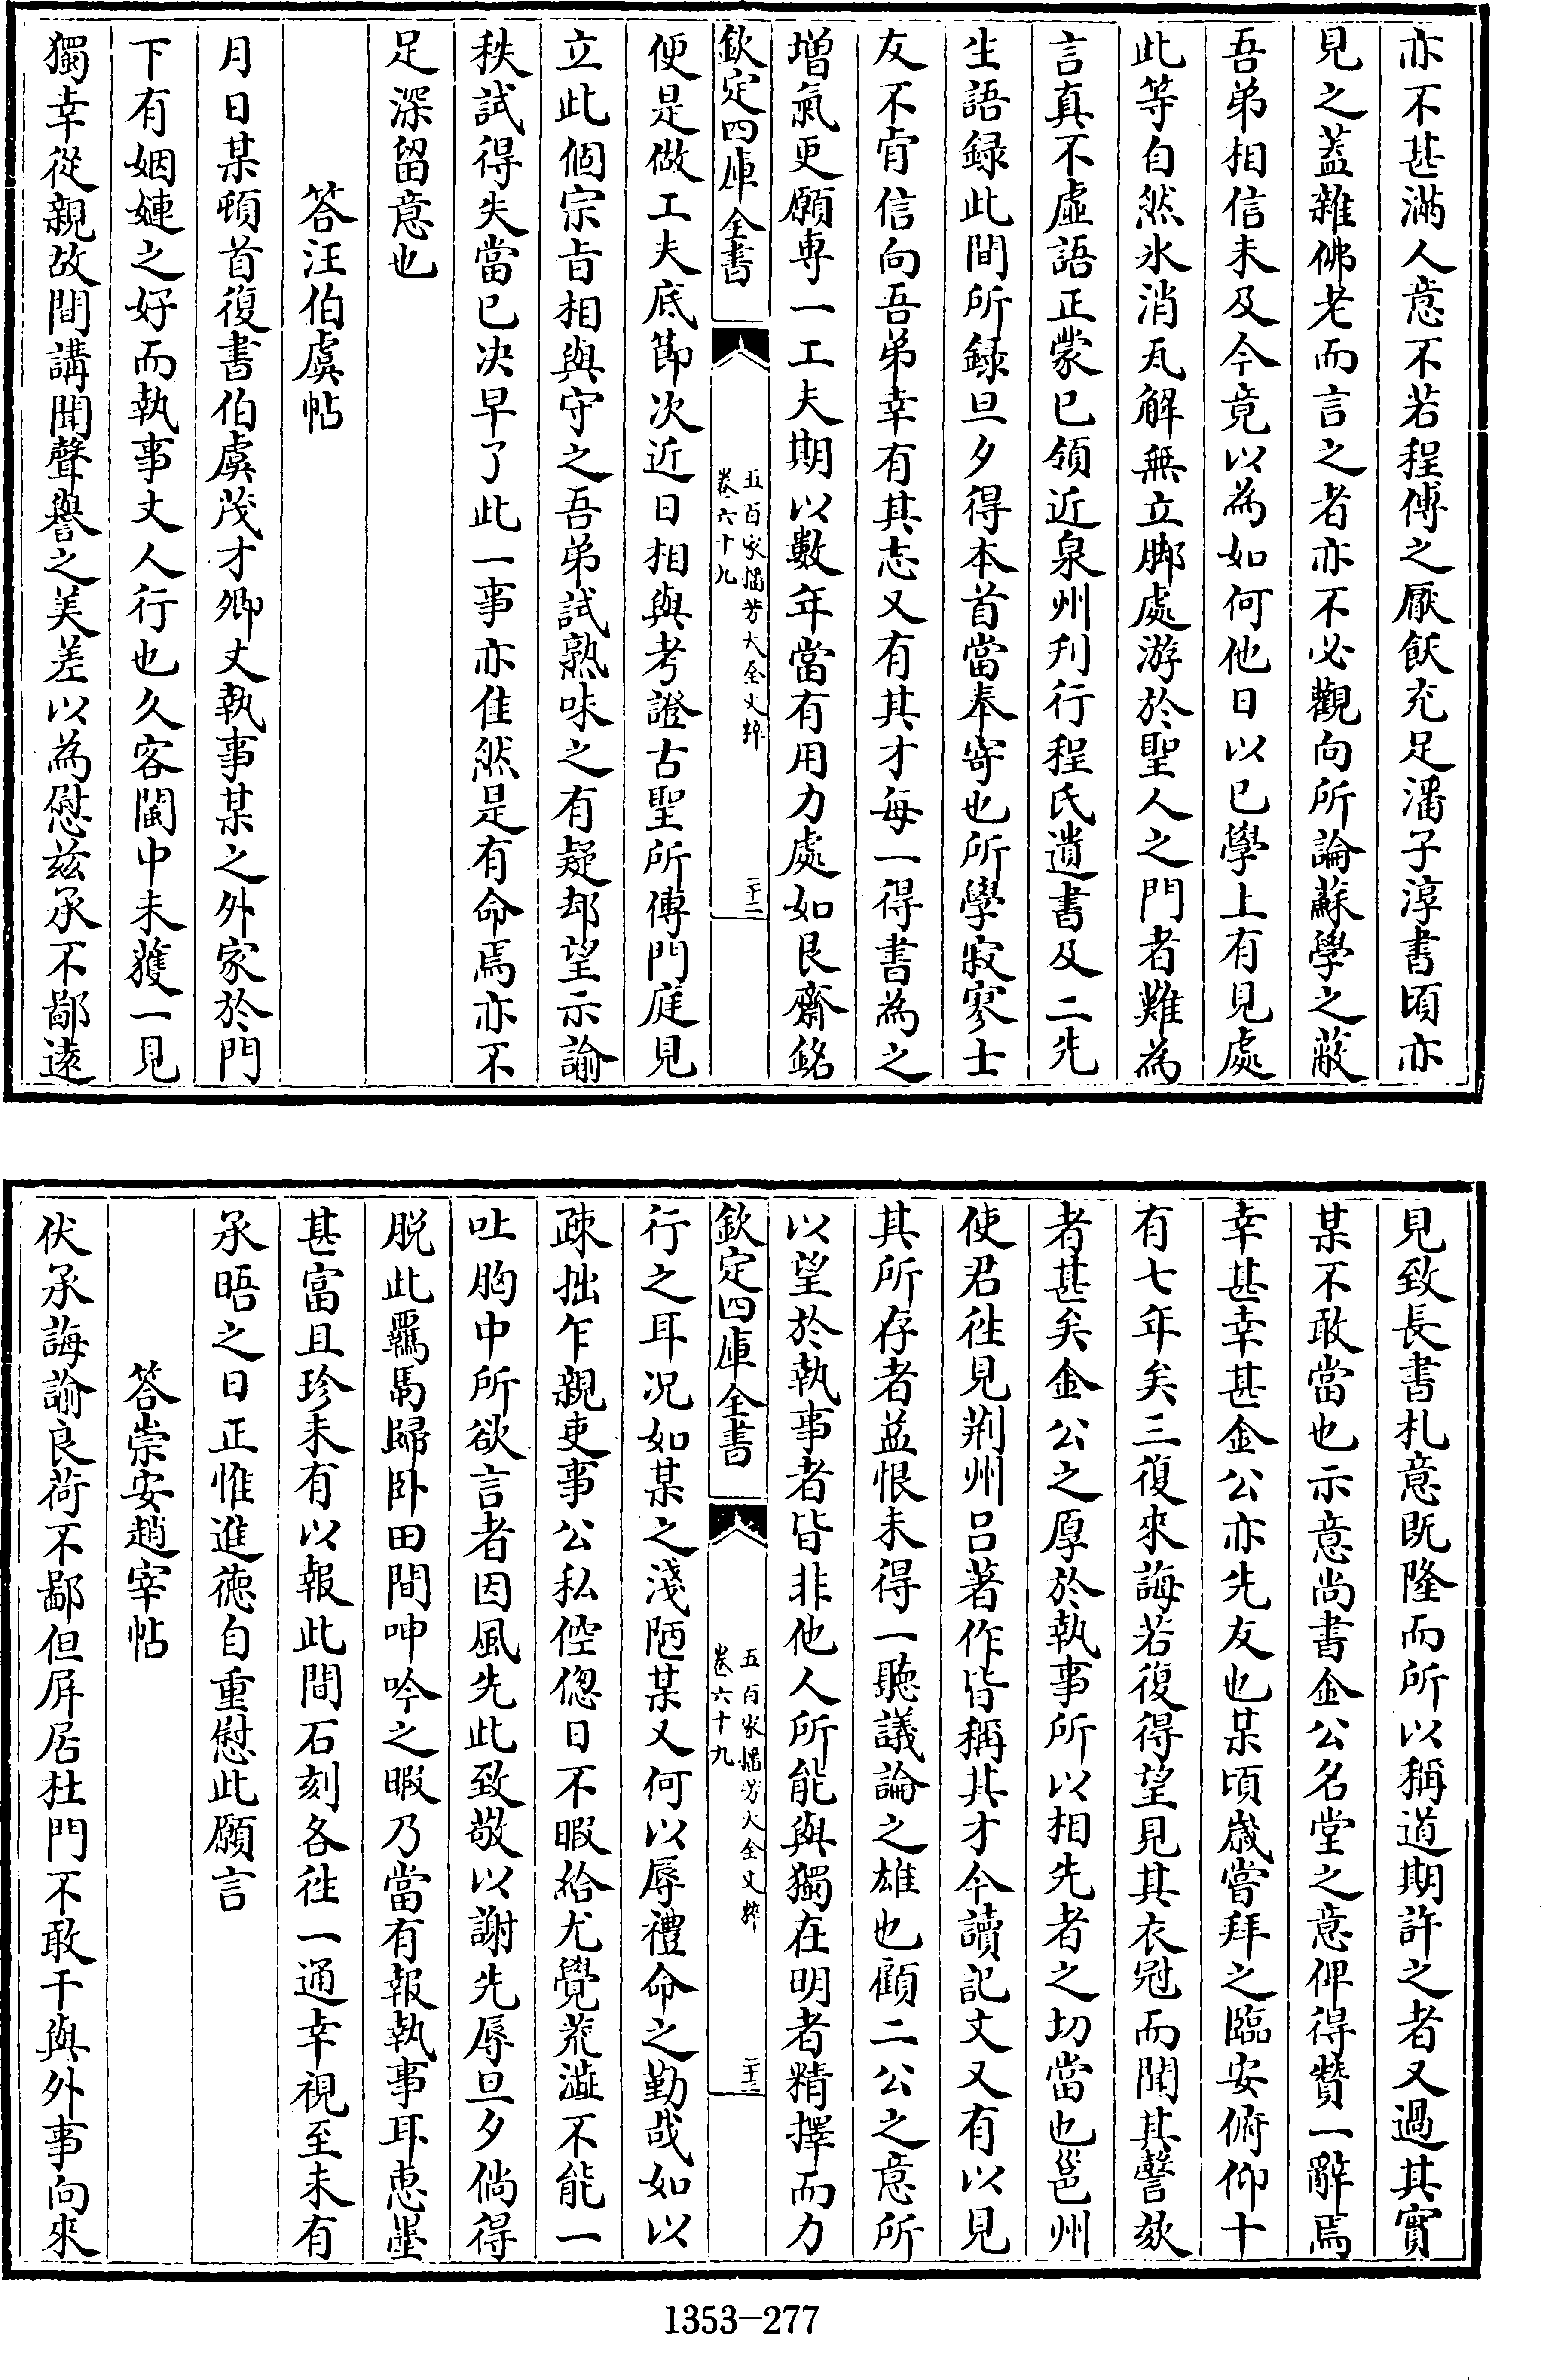 亦不甚滿人意不若程傳之厭飫充足潘子淳書頃亦
見之蓋雜佛老而言之者亦不必觀向所論蘇學之蔽
吾弟相信未及今竟以為如何他日以已學上有見處
此等自然氷消瓦解無立脚處游於聖人之門者難為
言真不虛語正蒙已領近泉州刋行程氏遺書及二先
生語録此間所録旦夕得本首當奉寄也所學寂寥士
友不肯信向吾弟幸有其志又有其才每一得書為之
增氣更願専一工夫期以數年當有用力處如艮齋銘
欽定四庫全書
五百家播芳大全文粹
卷六十九
二十二
便是做工夫底節次近日相與考證古聖所傳門庭見
立此個宗旨相與守之吾弟試熟味之有疑却望示諭
秩試得失當已决早了此一事亦佳然是有命焉亦不
足深留意也
答汪伯虞帖
月日某頓首復書伯虞茂才卿丈執事某之外家於門
下有姻婕之好而執事丈人行也久客閩中未獲一見
獨幸從親故間講聞聲譽之美差以為慰兹承不鄙逺
見致長書札意既隆而所以稱道期許之者又過其實
某不敢當也示意尚書金公名堂之意俾得贊一辭焉
幸甚幸甚金公亦先友也某頃嵗嘗拜之臨安俯仰十
有七年矣三復來誨若復得望見其衣冠而聞其謦欬
者甚矣金公之厚於執事所以相先者之切當也邕州
使君徃見荆州吕著作皆稱其才今讀記文又有以見
其所存者益恨未得一聽議論之雄也顧二公之意所
以望於執事者皆非他人所能與獨在明者精擇而力
欽定四庫全書
五百家播芳大全文粹
卷六十九
二十三
行之耳况如某之淺陋某又何以辱禮命之勤哉如以
疎拙乍親吏事公私倥偬日不暇給尤覺荒澁不能一
吐胸中所欲言者因風先此致敬以謝先辱旦夕倘得
脱此羈馽歸卧田間呻吟之暇乃當有報執事耳惠墨
甚富且珍未有以報此間石刻各徃一通幸視至未有
承晤之日正惟進徳自重慰此願言
答崇安趙宰帖
伏承誨諭良荷不鄙但屏居杜門不敢干與外事向來
1353-277